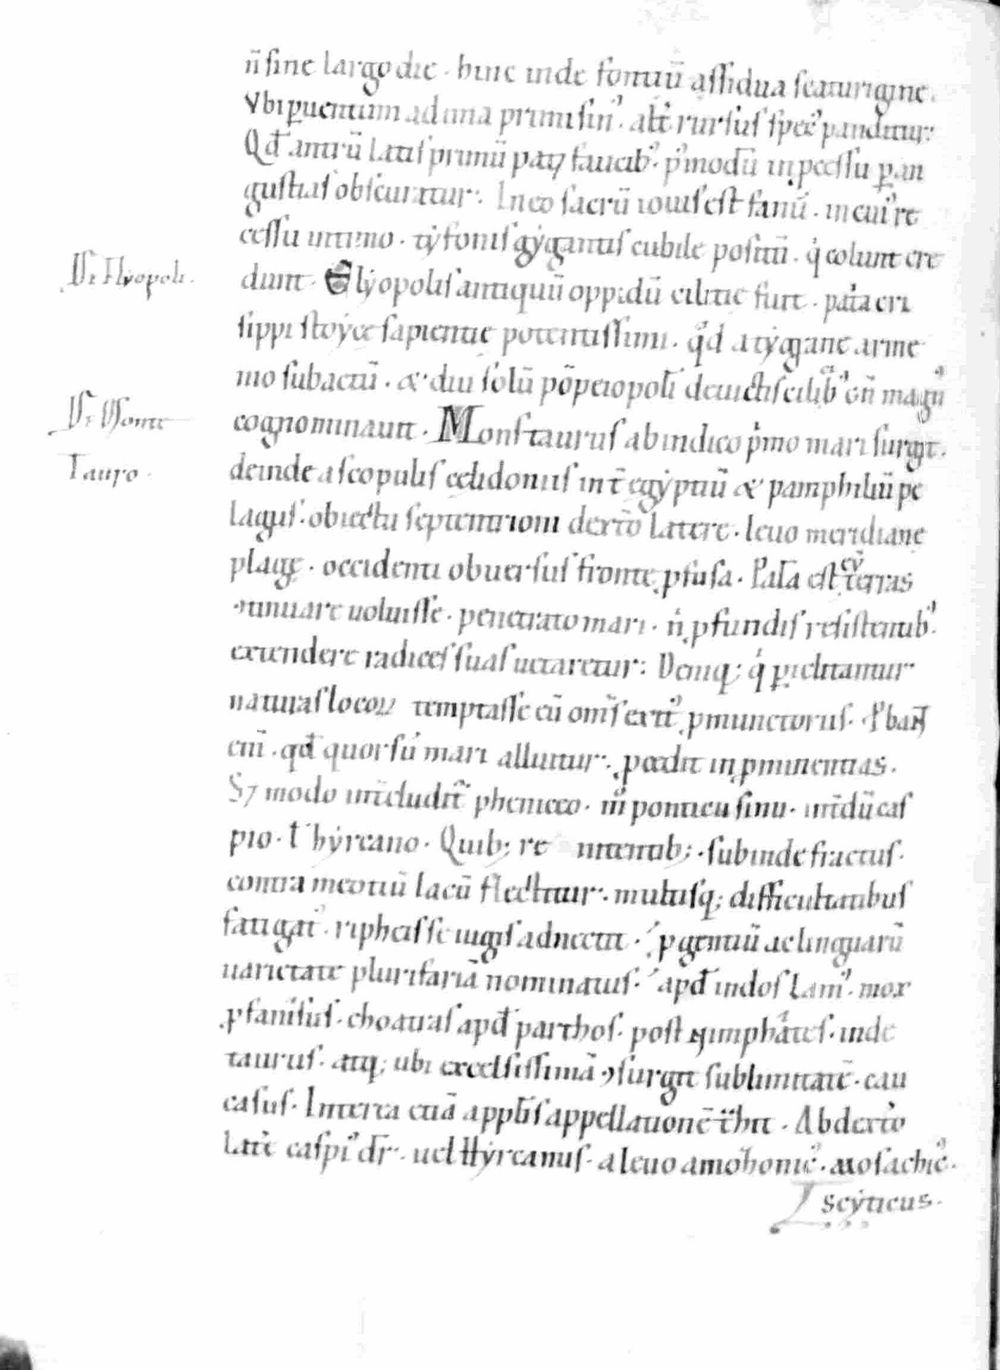 n̄ sine largo die . hinc inde fontiū assidua scaturigine .
Vbi ꝑuentum ad ima primi sinꝰ . alt̄ rursus specꝰ panditur:
Qd̄ antrū latis primū patꝫ faucibꝰ . pꝰmodū in ꝓcessu ꝑ an
gustias obscuratur . In eo sacrū iouis est fanū . in cuiꝰ re
cessu intimo . tẏfonis gẏgantis cubile positū . q̇ colunt cre
De Elyopoli .
dunt . Elẏopolis antiquū oppidū cilicie fuit . pat̄a cri
sippi stoẏce sapientie potentissimi . qd̄ a tẏgrane arme
nio subactū . & diu solū pōpeiopolī deuictis cilibꝰ gn̄ magnꝰ
De Monte
cognominauit . Mons taurus ab indico pͥmo mari surgit .
Tauro .
deinde a scopulis celidoniis int̄ egẏptiū & pamphiliū pe
lagus . obiectu septentrioni dext̄o latere . leuo meridiane
plage . occidenti obuersus fronte ꝓfusa . Palā est eū terras
ꝯtinuare uoluisse . penetrato mari . n̍ ꝓfundis resistentibꝰ .
extendere radices suas uetaretur . Deniqꝫ q̍ ꝑiclitantur
naturas locoꝝ temptasse eū om̄s exitꝰ ꝓmunctorus . Pbant
eni̅ . qd̄ quorsū mari alluitur . ꝓcedit in ꝓminentias .
Sꝫ modo int̄cluditʳ pheniceo . m̊ ponticu sinu . int̄dū cas
pio . t̄ hẏrcano . Quibꝫ re nitentibꝫ . subinde fractus .
contra meotiū lacū flectitur . multisqꝫ difficultatibus
fatigatꝰ . ripheis se iugis adnectit . ꝓ gentiū ac linguarū
uarietate plurifariā nominatus . apd̄ indos lamꝰ . mox
ꝓfanisus . choatras apd̄ parthos . post nimphates . inde
taurus . atqꝫ ubi excelsissimā ꝯsurgit sublimitatē . cau
casus . Interea etiā a pp̄lis appellationē t̄hit . Ab dext̄o
lat̄e caspiꝰ dr̄ . uel Hẏrcanus . a leuo amohonicꝰ . mosachicꝰ .
scẏticus .